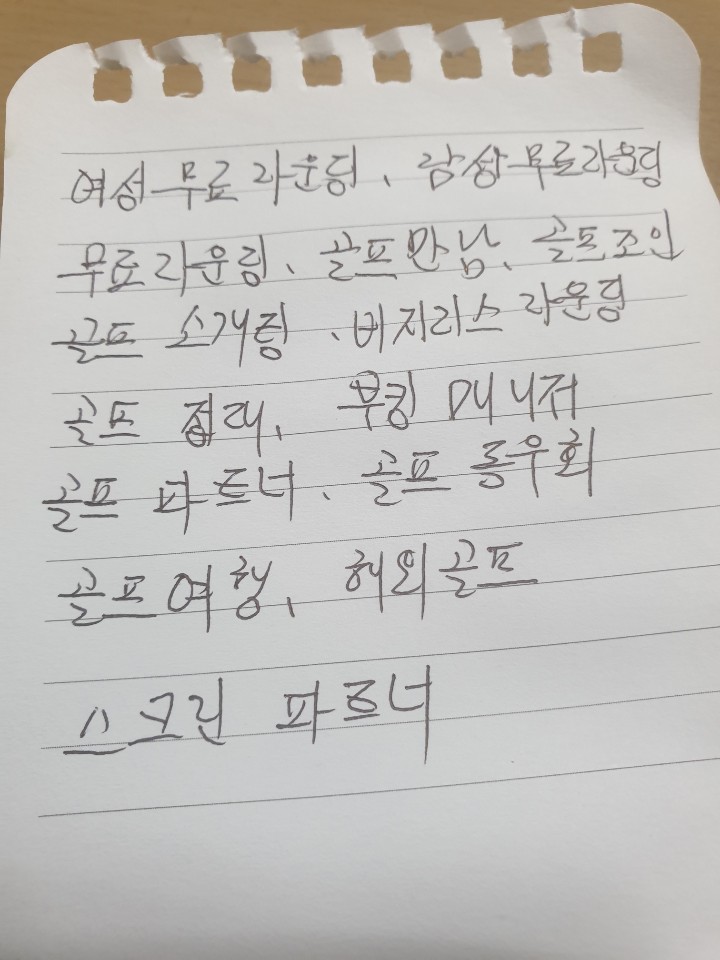 여성 무료 라운딩、남성 무료라운딩
무료라운딩、골프만남、골프조인
골프 소개팅、버지리스 라운딩
골프 접대、부킹 매니저
골프 파트너、골프 동우회
골프여행、해외골프
스크린 파트너